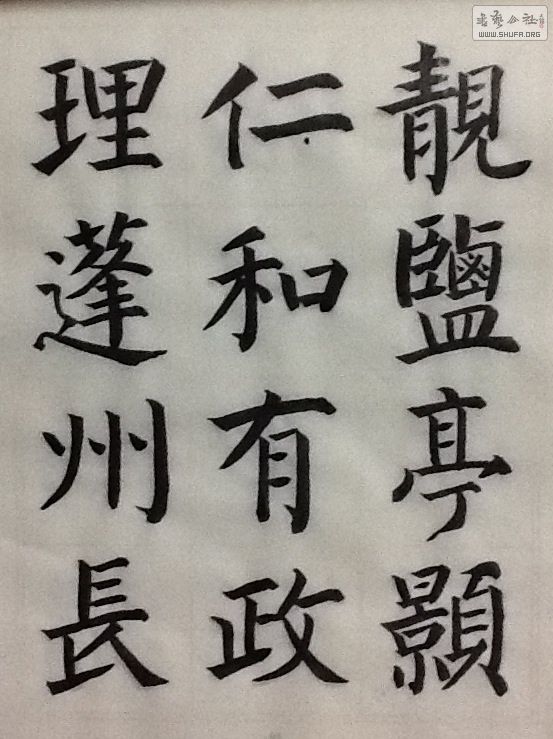 靚鹽亭顥
仁和有政
理蓬州長
藝公社
WWW.SHUFA.ORG